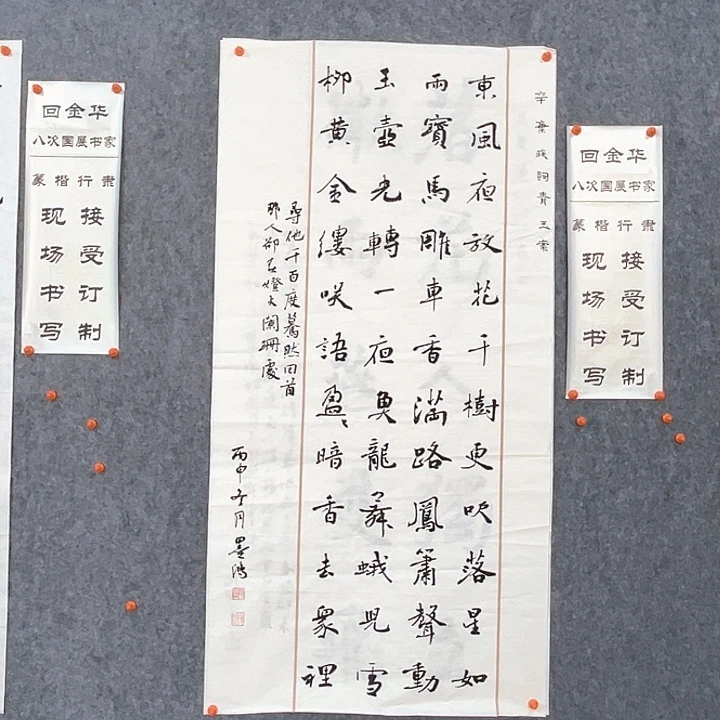 回金华
八次国展书家
篆楷行隶
现场书写
接受订制
辛棄疾詞青玉案
東風夜放花千樹更吹落星如
雨寶馬雕車香滿路鳳簫聲動
玉壺光轉一夜魚龍舞蛾兒雪
柳黃金縷咲語盈〻暗香去眾裡
尋他千百度驀然回首
那人卻在燈火闌珊處
丙申冬月墨
回金华
八次国展书家
篆楷行隶
现场书写
接受订制